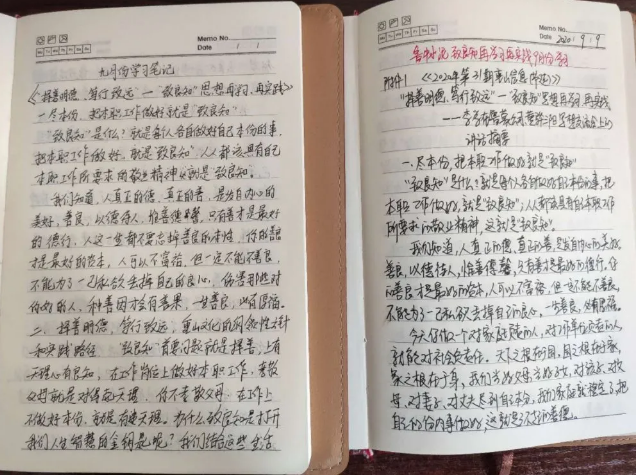 Memo No.
Mo Tu We Th Fr Sa Su
Date / /
九月份学习笔记
《"择善明德、笃行致远"—"致良知"思想再学习、再实践》
一、尽本份,把本职工作做好就是"致良知"
"致良知"是什么?就是每个人各自做好自己本份的事,
把本职工作做好,就是"致良知",人人都该具有自己
本职工作所要求的敬业精神,这就是致良知。
我们知道,人真正的德,真正的善,是发自内心的
美好,善良,以德待人,惟善德馨,只有善才是最好
的德行,人这一生都不要忘掉善良的本性,你的善良
才是最好的资本,人可以不富裕,但一定不能不善良,
不能为了一己私欲去掉自己的良心,伤害那些对
你好的人,种善因才会有善果,一生善良,必有厚福。
二、择善明德、笃行致远,
和实践路径 "致良知"首要问题就是择善,上有
天理心有良知,在工作岗位上做好本职工作,孝敬
父母就是对得起天理,你不孝敬父母,在工作上
不做好本份,就是有违天理。为什么致良知是打开
我们人生智慧的金钥匙呢?我们结合这些
Memo No.
Mo Tu We Th Fr Sa Su
Date 2020 / 9 / 9
致良知再学习再实践9月份学习
附件1 《2020年第31期
"择善明德、笃行致远—"致良知"思想再学习、再实践
讲话摘要
一、尽本份,把本职工作做好就是"致良知"
"致良知"是什么?就是每个人各自做好自己本份的事,把
本职工作做好,就是"致良知";人人都该具有自己本职工作
所要求的敬业精神,这就是"致良知"。
我们知道,人真正的德,真正的善,是发自内心的美好,
善良,以德待人,惟善德馨,只有善才是最好的德行,你
的善良才是最好的资本,人可以不富裕,但一定不能不善良,
不能为了一己私欲去掉自己的良心,一生善良,必有厚福。
今天你做一个对家庭负责的人,对工作单位负责的人,
就能对社会负责任。天下之根在国,国之根在家,
家之根在于身,我们当好父母,当好子女,对孩子、对父
母、对妻子、对丈夫尽到自己本分,我们家庭就稳定了,把
自己的份内事做好,这就是了不了的善德。